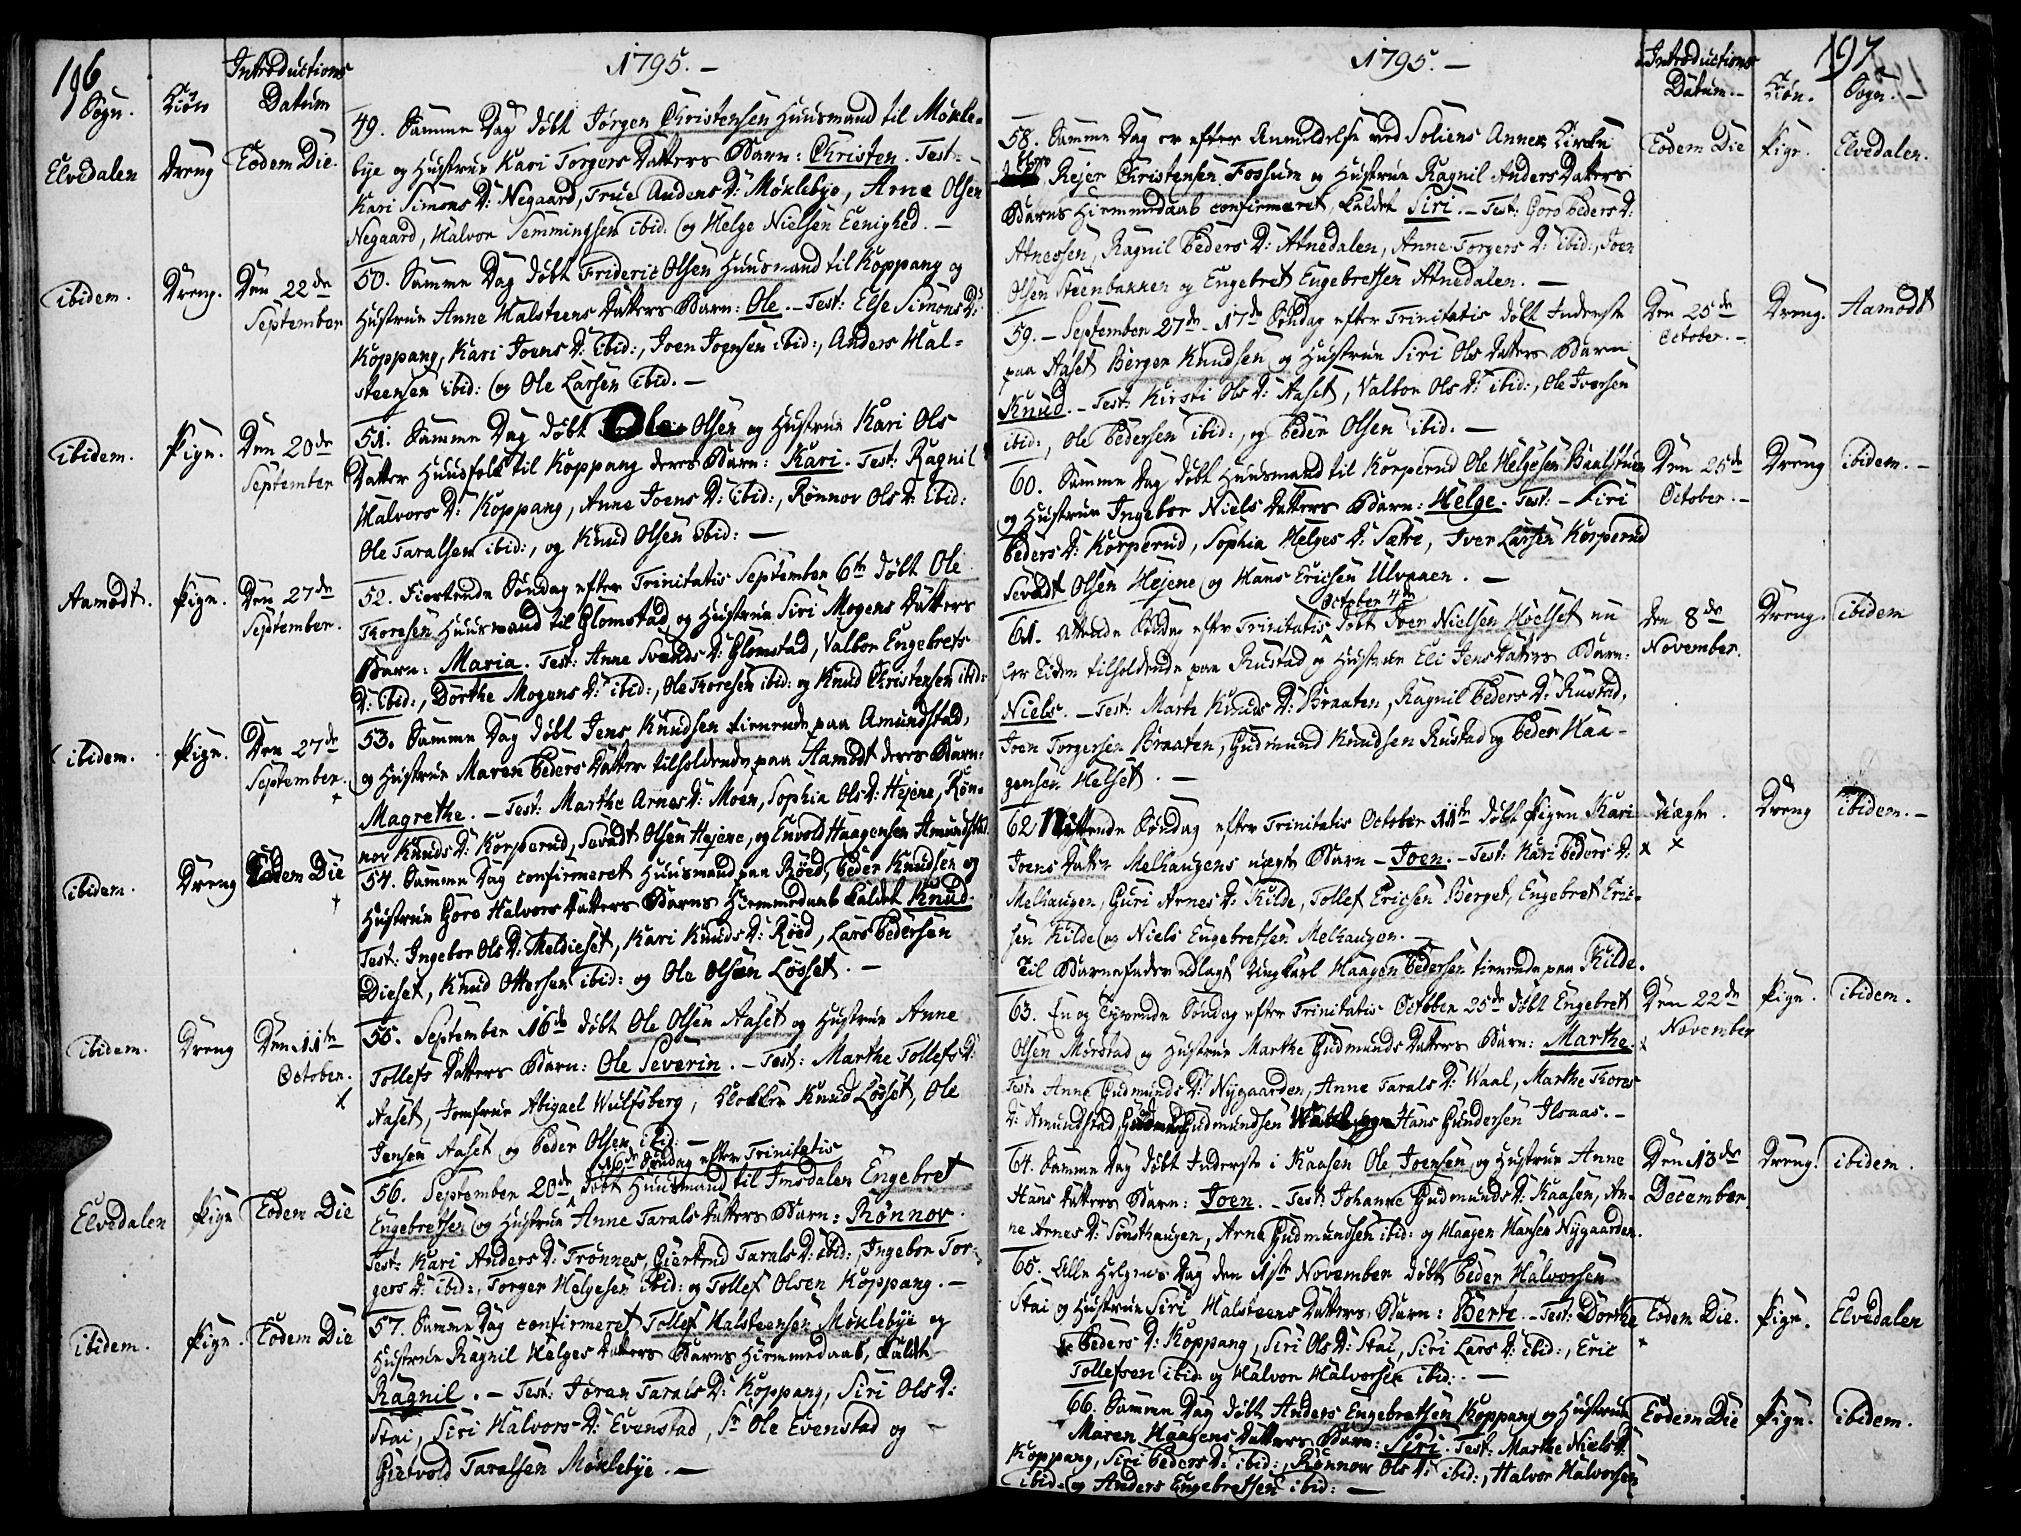 196
Sogn. Kiön Introductions Datum
1795. –
Elvedalen Dreng Eodem Die.
49. Samme Dag döbt Jörgen Christensen Huusmand til Mökle-
bye og Hustrue Kari Torgers Datters Barn: Christen. Test:
Kari Simons D: Negaard, True Andens D: Möklebye, Arne Olsen
Negaard, Halvor Semmingsen ibid: og Helge Nielsen Eenighed. –
ibidem. Dreng. Den 22de September
50. Samme Dag döbt Frideric Olsen Huusmand til Koppang og
Hustrue Anne Halsteens Datters Barn: Ole. – Test: Else Simons D:
Koppang, Kari Joens D: ibid:, Joen Joensen ibid:, Anders Hal-
steensen ibid: og Ole Larsen ibid. –
ibidem. Pige. Den 20de September
51. Samme Dag döbt Ole Olsen og Hustrue Kari Ols
Datter Huusfolk til Koppang deres Barn: Kari. Test: Ragnil
Halvors D: Koppang, Anne Joens D: ibid:, Rönnov Ols D: ibid:
Ole Taralsen ibid:, og Knud Olsen ibid: –
Aamodt. Pige. Den 27de September.
52. Fiortende Söndag efter Trinitatis September 6te döbt Ole
Thoresen Huusmand til Glomstad og Hustrue Siri Mogens Datters
Barn: Maria. Test: Anne Svends D: Glomstad, Valbor Engebrets
D: ibid:, Dorthe Mogens D: ibid:, Ole Thoresen ibid: og Knud Christensen ibid:
ibidem. Pige. Den 27de September.
53. Samme Dag döbt Jens Knudsen tienende paa Amundstad,
og Hustrue Maren Peders Datter tilholdende paa Aamodt deres Barn:
Magrethe. – Test: Marthe Arnes D: Moen, Sophia Ols D: Hejene, Rön-
nov Knuds D: Korperud, Sevadt Olsen Hejene, og Envold Haagensen Amundstad.
ibidem. Dreng Eodem Die
54. Samme Dag confirmeret Huusmand paa Röed, Peder Knudsen og
Hustrue Goro Halvors Datters Barns Hiemmedaab kaldet Knud.
Test: Ingebor Ols D: Meldieset, Kari Knuds D: Röed, Lars Pedersen
Dieset, Knud Ottersen ibid: og Ole Olsen Lösset. –
ibidem. Dreng Den 11te October.
55. September 16de döbt Ole Olsen Aaset og Hustrue Anne
Tollefs Datters Barn: Ole Severin. – Test: Marthe Tollefs D:
Aaset, Jomfrue Abigael Wulfsberg, Klokker Knud Lösset, Ole
Jensen Aaset og Peder Olsen ibid: –
16de Söndag efter Trinitatis
Elvedalen Pige Eodem Die
56. September 20de döbt Huusmand til Imsdalen Engebret
Engebretsen og Hustrue Anne Tarals Datters Barn: Rönnov.
Test: Kari Anders D: Trönnes, Giertrud Tarals D: ibid:, Ingebor Tor-
gers D: ibid:, Torger Helgesen ibid: og Tollef Olsen Koppang. –
ibidem. Pige. Eodem Die
57. Samme Dag confirmeret Tollef Halsteensen Möklebye og
Hustrue Ragnil Helges Datters Barns Hiemmedaab, kaldt
Ragnil. – Test: Jöran Tarals D: Koppang, Siri Ols D:
Stai, Siri Halvors D: Evenstad, Sr Ole Evenstad og
Gietvold Taralsen Möklebye. –
197
1795. –
Introductions Datum. – Kiön. Sogn. –
58. Samme Dag er efter Anmeldelse ved Soliens Annex Kirke
Rejer Christensen Fossum og Hustrue Ragnil Anders Datters
Barns Hiemmedaab confirmeret, kaldet Siri. – Test: Goro Peders D:
Atneosen, Ragnil Peders D: Atnedalen, Anne Torgers D: ibid:, Joen
Olsen Steenbakken og Engebret Engebretsen Atnedalen. –
Eodem Die Pige. Elvedalen.
59. – September 27de 17de Söndag efter Trinitatis döbt Inderste
paa Aaset Berger Knudsen og Hustrue Siri Ols Datters Barn
Knud. – Test: Kirsti Ols D: Aaset, Valbor Ols D: ibid:, Ole Iversen
ibid:, Ole Pedersen ibid:, og Peder Olsen ibid. –
Den 25de October. – Dreng. Aamodt
60. Samme Dag döbt Huusmand til Korperud Ole Helgesen Baalstuen
og Hustrue Ingebor Niels Datters Barn: Helge. Test: – Siri
Peders D: Korperud, Sophia Helges D: Sætre, Iver Larsen Korperud
Sevadt Olsen Hejene og Hans Ericsen Ulvaaen. –
Den 25de October. – Dreng ibidem. –
October 4de
61. Attende Söndag efter Trinitatis döbt Iver Nielsen Hoelset nu
for Tiden tilholdende paa Rustad og Hustrue Eli Jens Datters Barn:
Niels. – Test: Marte Knuds D: Braaten, Ragnil Peders D: Rustad,
Joen Torgersen Braaten, Gudmund Knudsen Rustad og Peder Haa-
gensen Helset. –
Den 8de November. Dreng. ibidem
62. Nittende Söndag efter Trinitatis October 11te döbt Pigen Kari
Joens Datter Melhaugens uægte Barn – Joen. – Test: Kari Peders D:
Melhaugen, Guri Arnes D: Kilde, Tollef Ericsen Berget, Engebret Eric-
sen Kilde og Niels Engebretsen Melhaugen. –
Til Barnefader udlagt Ungkarl Haagen Pedersen tienende paa Kilde.
Uægte. Dreng ibidem. –
63. En og Tyvende Söndag efter Trinitatis October 25de döbt Engebret
Olsen Mörstad og Hustrue Marthe Gudmunds Datters Barn: Marthe.
Test: Anne Gudmunds D: Nygaarden, Anne Tarals D: Waal, Marthe Thores
D: Amundstad, Gudmundsen og Hans Gundersen Ilsaas. –
Den 22de November Pige. ibidem.
64. Samme Dag döbt Inderste i Kaasen Ole Joensen og Hustrue Anne
Hans Datters Barn: Joen. – Test: Johanne Gudmunds D: Kaasen, An-
ne Arnes D: Sönsthaugen, Arne Gudmundsen ibid: og Haagen Hansen Nygaarden.
Den 13de December Dreng. ibidem.
65. Alle Helgens Dag den 1ste November döbt Peder Halvorsen
Stai og Hustrue Siri Halsteens Datters Barn: Berte. – Test: Dorthe
Peders D: Koppang, Siri Ols D: Stai, Siri Lars D: ibid:, Eric
Tollefsen ibid: og Halvor Halvorsen ibid: –
Eodem Die. Pige. Elvedalen
66. Samme Dag döbt Anders Engebretsen Koppang og Hustrue
Maren Haagens Datters Barn: Siri. Test: Marthe Niels D:
Koppang, Siri Peders D: ibid:, Rönnow Ols D: ibid:, Halvor Halvorsen
ibid: og Anders Engebretsen ibid: –
Eodem Die Pige. ibidem.